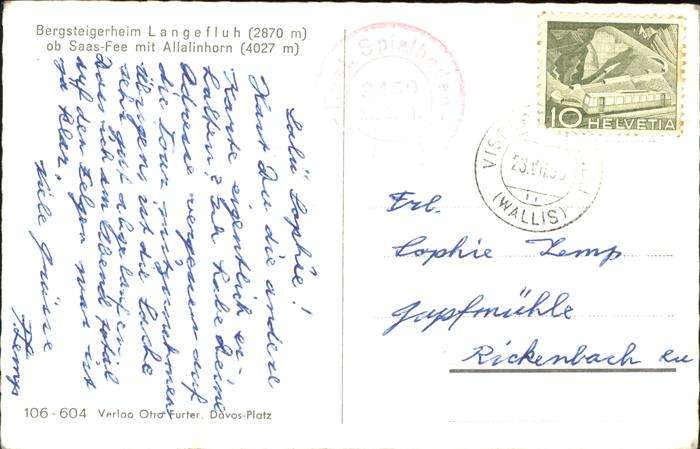 Bergsteigerheim Langefluh (2870 m)
ob Saas-Fee mit Allalinhorn (4027 m)
Salü Sophie!
Hast Du die andere
Karte eigentlich er-
halten? Ich habe Deine
Adresse vergessen auf
die Tour mitzunehmen
Übrigens ist die Sache
sehr gut abgelaufen
Dass ich am Abend total
auf den Felgen war ist
ja klar.
Viele Grüsse
Zemp
106-604 Verlag Otto Furter, Davos-Platz
Spielboden
10 HELVETIA
VISP
(WALLIS)
Frl.
Sophie Zemp
Japfmühle
Rickenbach